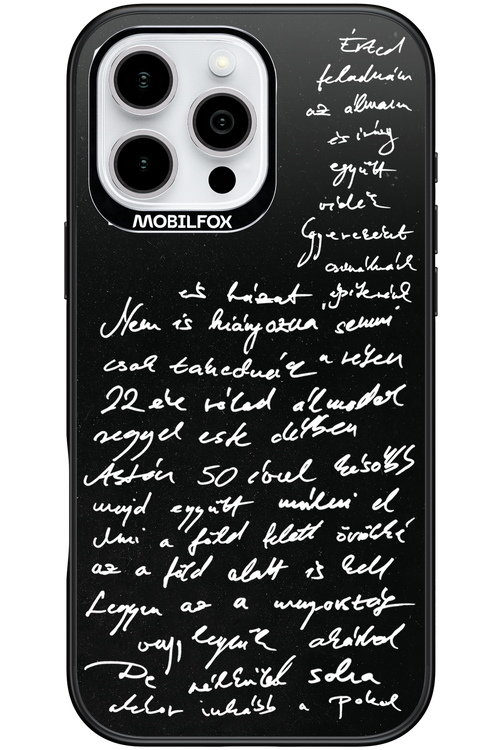 MOBILFOX
Érted
feladnám
az álmaim
és így
együtt
vidék
Gyereket
csinálnánk
és házat építenénk
Nem is hiányozna semmi
csak
22 éve rólad álmodok
reggel este délben
Aztán 50 évvel később
majd együtt múlni el
Ami a föld felett örökké
az a föld alatt is kell
Legyen az a mennyország
vagy legyünk akárhol
De nélküled soha
akkor inkább a Pokol